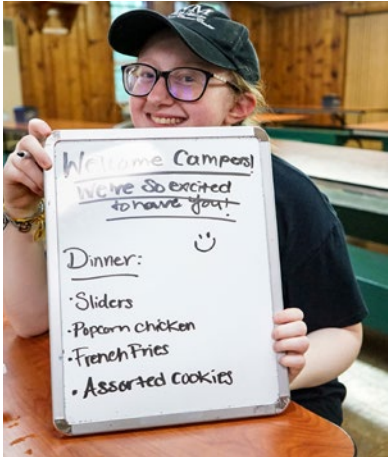 Welcome Campers!
We're so excited
to have you!
Dinner:
• Sliders
• Popcorn chicken
• French Fries
• Assorted Cookies